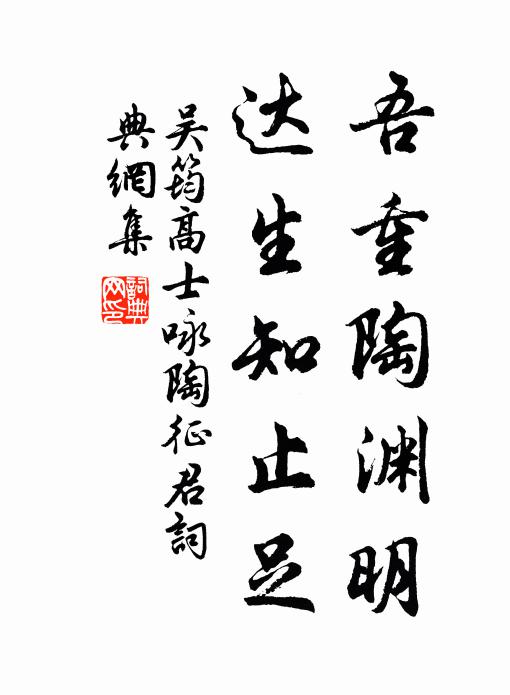 吾重陶渊明
达生知止足
吴筠高士咏陶征君詞
典網集
詞典
网印